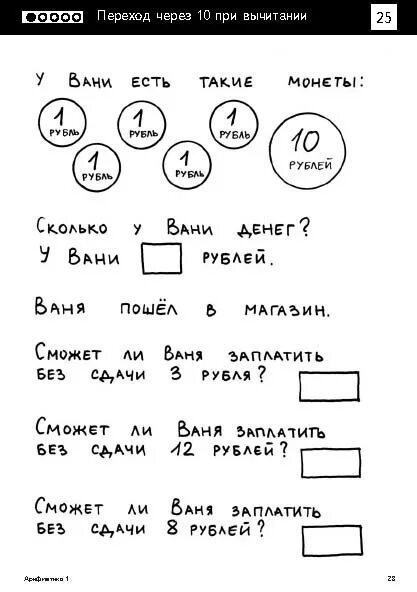 Переход через 10 при вычитании
25
У ВАНИ ЕСТЬ ТАКИЕ МОНЕТЫ:
1 РУБЛЬ
1 РУБЛЬ
1 РУБЛЬ
10 РУБЛЕЙ
1 РУБЛЬ
1 РУБЛЬ
СКОЛЬКО У ВАНИ ДЕНЕГ?
У ВАНИ РУБЛЕЙ.
ВАНЯ ПОШЁЛ В МАГАЗИН.
СМОЖЕТ ЛИ ВАНЯ ЗАПЛАТИТЬ
БЕЗ СДАЧИ 3 РУБЛЯ?
СМОЖЕТ ЛИ ВАНЯ ЗАПЛАТИТЬ
БЕЗ СДАЧИ 12 РУБЛЕЙ?
СМОЖЕТ ЛИ ВАНЯ ЗАПЛАТИТЬ
БЕЗ СДАЧИ 8 РУБЛЕЙ?
Арифметика 1
28